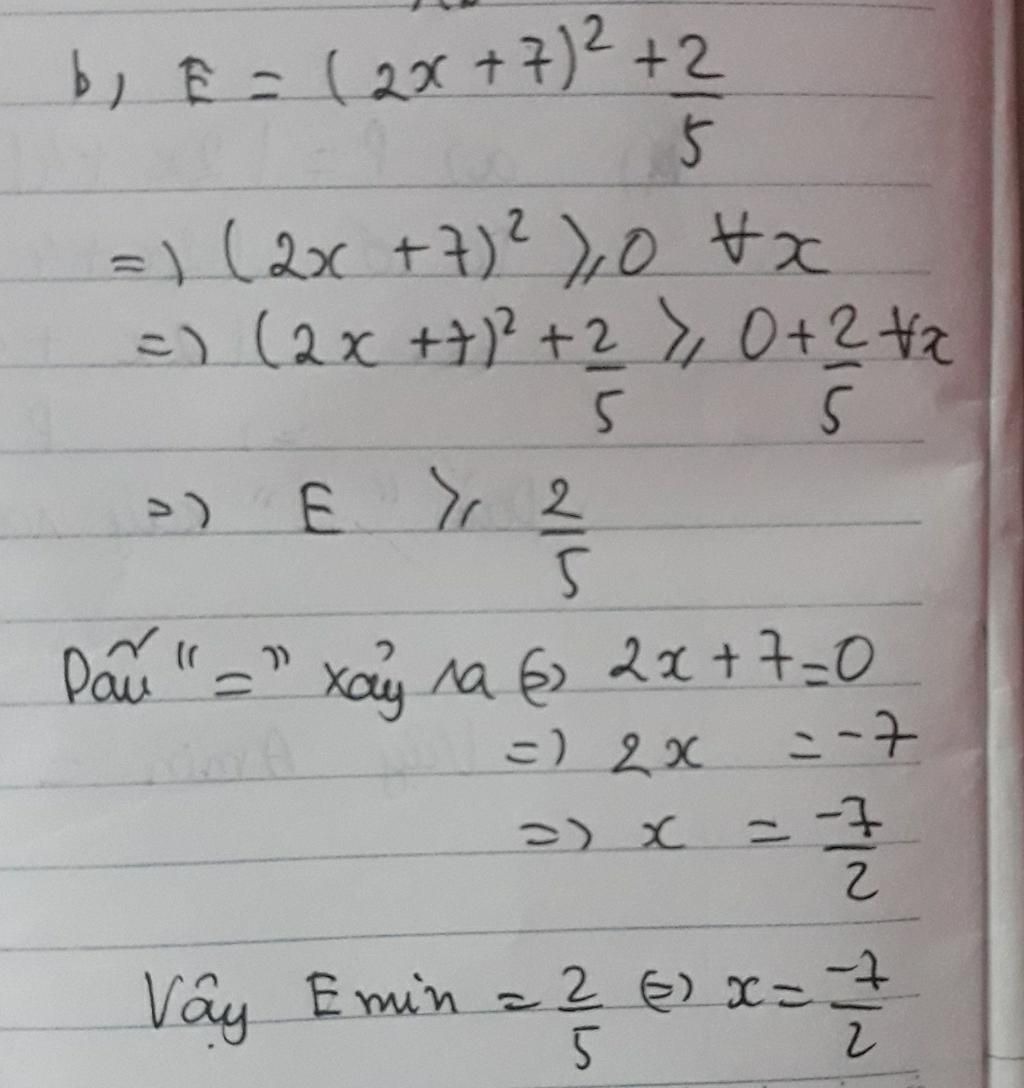 b, E = (2x + 7)² + 2/5
=) (2x + 7)² ⩾ 0 ∀x
=) (2x + 7)² + 2/5 ⩾ 0 + 2/5 ∀x
=) E ⩾ 2/5
Dẫu "=" xảy ra (=) 2x + 7 = 0
=) 2x = -7
=) x = -7/2
Vậy E min = 2/5 (=) x = -7/2